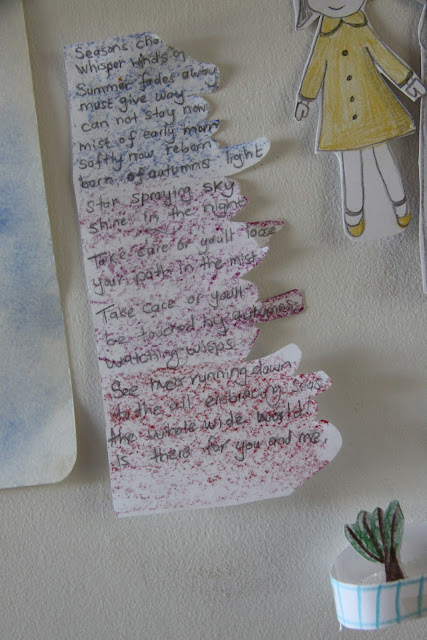 Seasons cha
whisper winds
Summer fades away
must give way
can not stay now
mist of early morn
saftly now reborn
born of autumns light
Star spraying sky
shine in the night
Take care or you'll loose
your path in the mist
Take care or you'll
be touched by autumns
watching wisps
See rivers running down
to the all embracing sea
the whole wide world
Is there for you and me